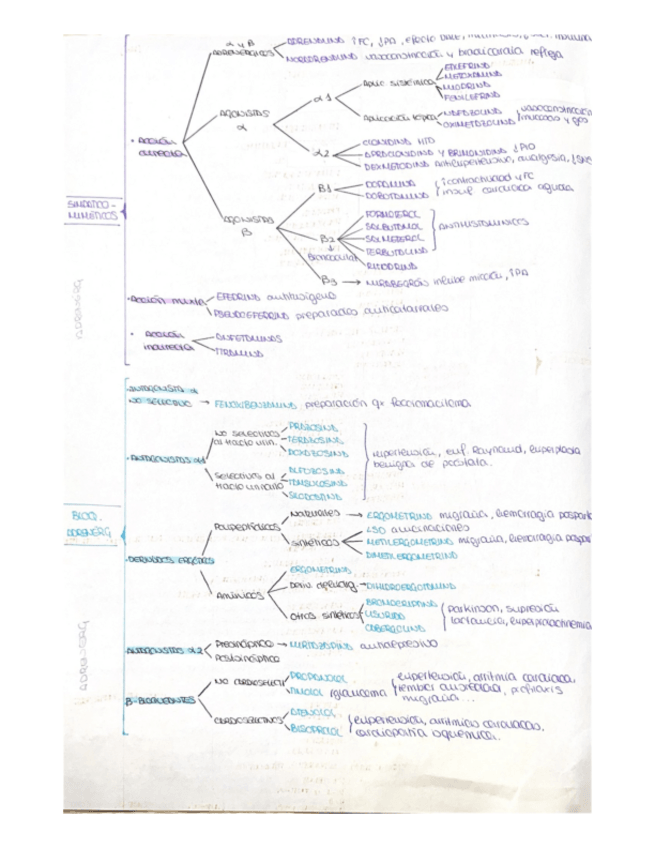 α y β
ADRENÉRGICOS
ADRENALINA ↑FC, ↓PA, efecto
NORADRENALINA vasoconstricción y bradicardia refleja
• Acción
directa
AGONISTAS
α
α1
Aplic sistémica
ETILEFRINA
METOXAMINA
MIDODRINA
FENILEFRINA
Aplicación tópica
NAFAZOLINA
OXIMETAZOLINA
vasoconstricción
mucosas y
α2
CLONIDINA HTA
APRACLONIDINA Y BRIMONIDINA ↓PIO
DEXMEDETOMIDINA antihipertensivo, analgesia, ↓SNC
SIMPÁTICO-
MIMÉTICOS
AGONISTAS
β
β1
DOPAMINA
DOBUTAMINA
↑contractilidad y FC
insuf cardiaca aguda
β2
FORMOTEROL
SALBUTAMOL
SALMETEROL
TERBUTALINA
RITODRINA
ANTIHISTAMINICOS
β3 → MIRABEGRÓN inhibe micción, ↑PA
ADRENERG
• Acción mixta
EFEDRINA antitusígeno
PSEUDOEFEDRINA preparados anticatarrales
• Acción
indirecta
ANFETAMINAS
TIRAMINA
• ANTAGONISTA α
NO SELECTIVO → FENOXIBENZAMINA preparación qx feocromocitoma
• ANTAGONISTAS α1
NO SELECTIVOS
al tracto urin.
PRAZOSINA
TERAZOSINA
DOXAZOSINA
SELECTIVOS al
tracto urinario
ALFUZOSINA
TAMSULOSINA
SILODOSINA
hipertensión, enf. Raynaud, hiperplasia
benigna de próstata..
BLOQ.
ADRENERG
• DERIVADOS ERGÓTICOS
Polipeptídicos
Naturales → ERGOMETRINA migraña, hemorragia pospart
Sintéticos
LSD alucinaciones
METILERGOMETRINA migraña, hemorragia pospar
DIMETILERGOMETRINA
Amínicos
ERGOMETRINA
→ DIHIDROERGOTAMINA
Otros sintéticos
BROMOCRIPTINA
LISURIDA
CABERGOLINA
parkinson, supresión
lactancia, hiperprolactinemia
ADRENERG
ANTAGONISTAS α2
Presináptico → MIRTAZAPINA antidepresivo
Postsináptico
β-BLOQUEANTES
NO CARDIOSELECT
PROPANOLOL
TIMOLOL glaucoma
hipertensión, arritmia cardiaca
temblor ansiedad, profilaxis
migraña...
CARDIOSELECTIVOS
ATENOLOL
BISOPROLOL
hipertensión, arritmias cardiacas,
cardiopatía isquémica..